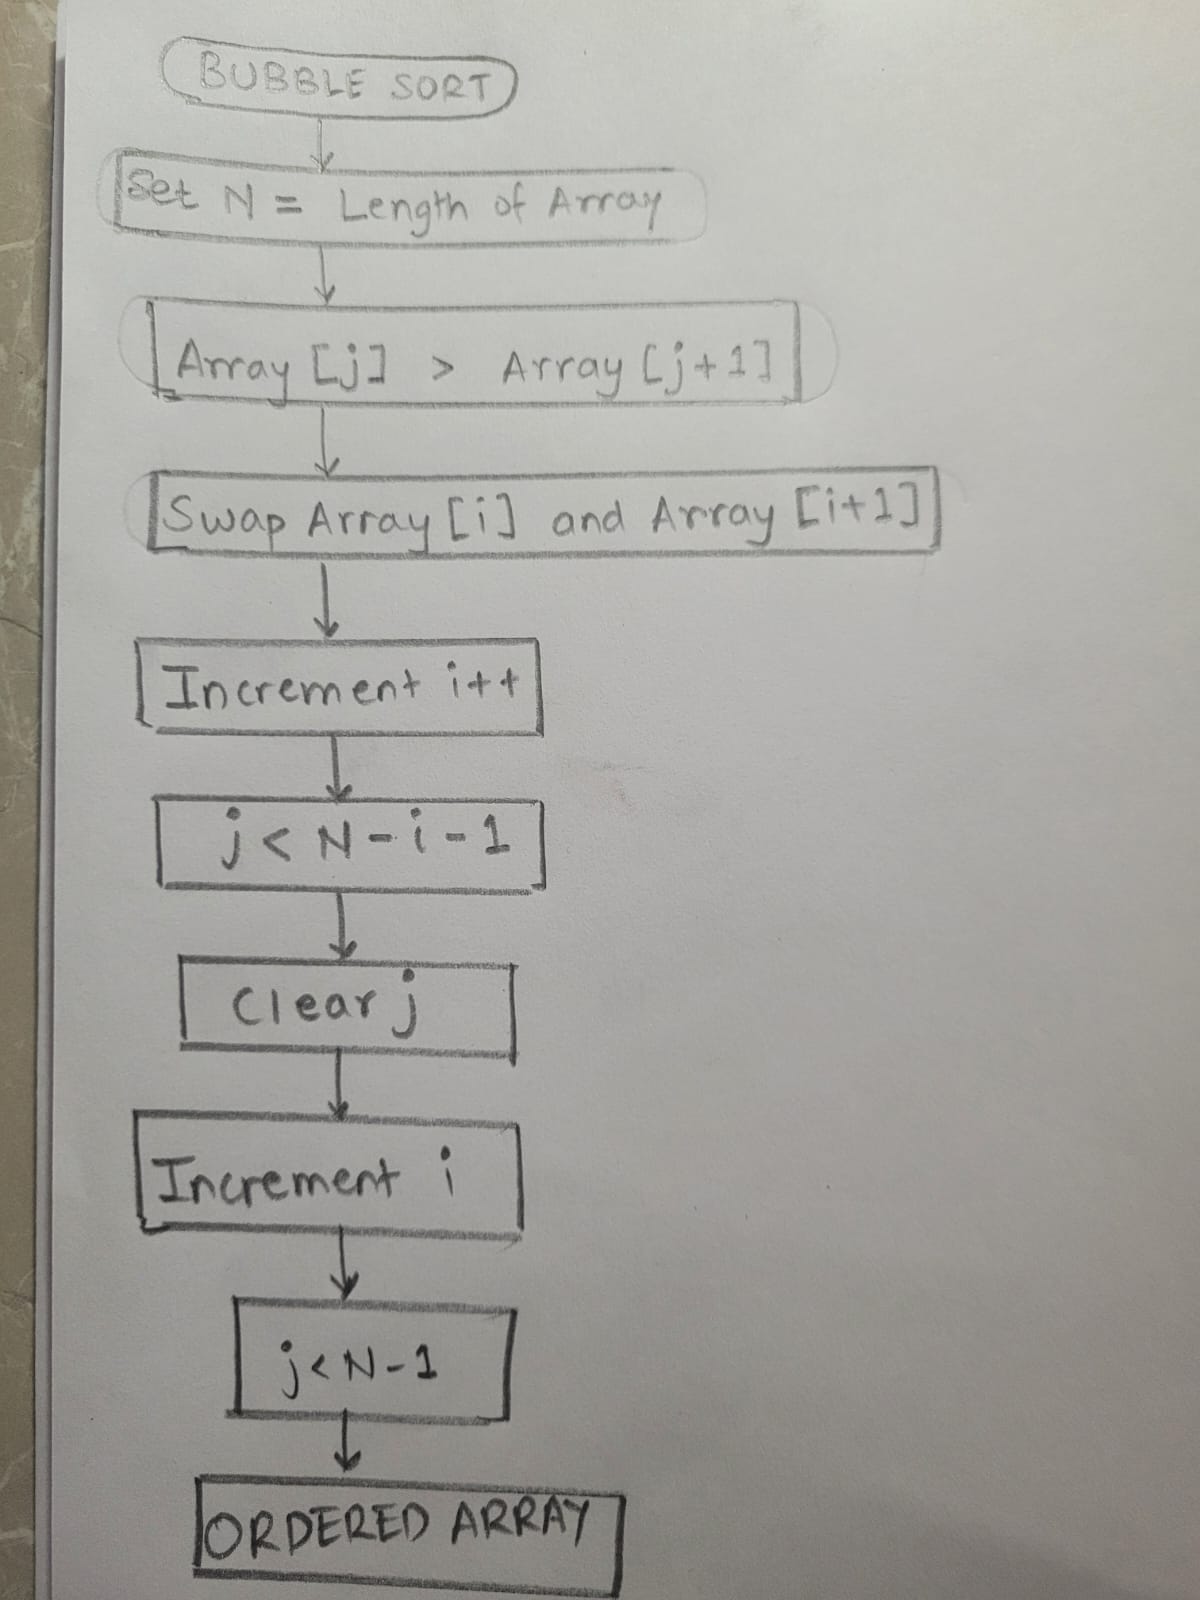 BUBBLE SORT
Set N = Length of Array
Array [j] > Array [j+1]
Swap Array [i] and Array [i+1]
Increment i++
j < N-i-1
Clear j
Increment i
j<N-1
ORDERED ARRAY